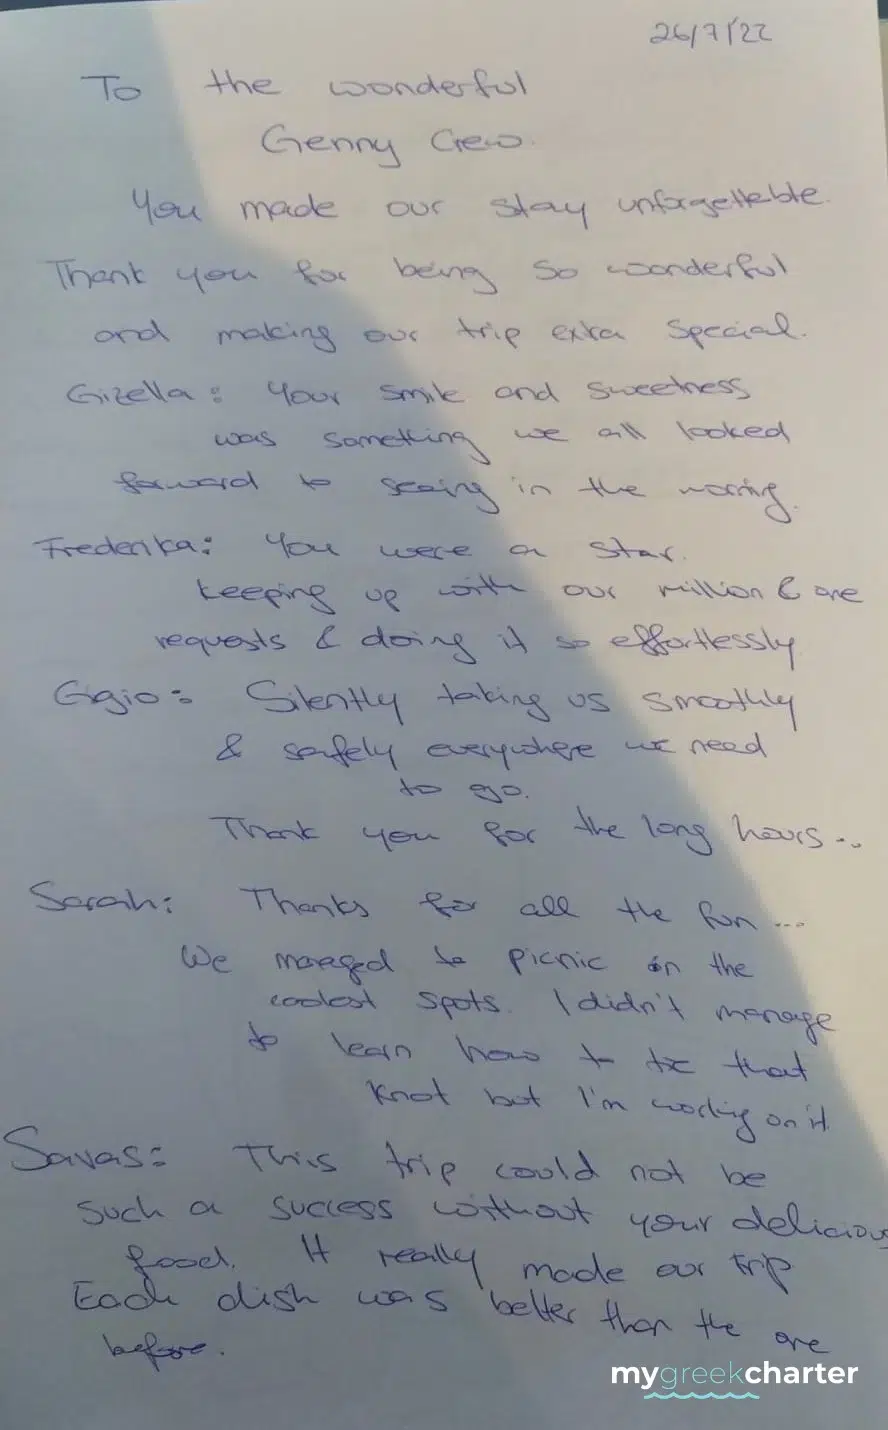 26/7/22
To the wonderful
Genny Crew.
You made our stay unforgettable.
Thank you for being so wonderful
and making our trip extra special.
Gizella: Your smile and sweetness
was something we all looked
forward to seeing in the morning.
Frederika: You were a star.
keeping up with our million & one
requests & doing it so effortlessly
Gigio: Silently taking us smoothly
& safely everywhere we need
to go.
Thank you for the long hours...
Sarah: Thanks for all the fun...
We managed to picnic in the
coolest spots. I didn't manage
to learn how to tie that
knot but I'm working on it
Savas: This trip could not be
such a success without your delicious
food. It really made our trip
Each dish was better than the one
before.
mygreekcharter